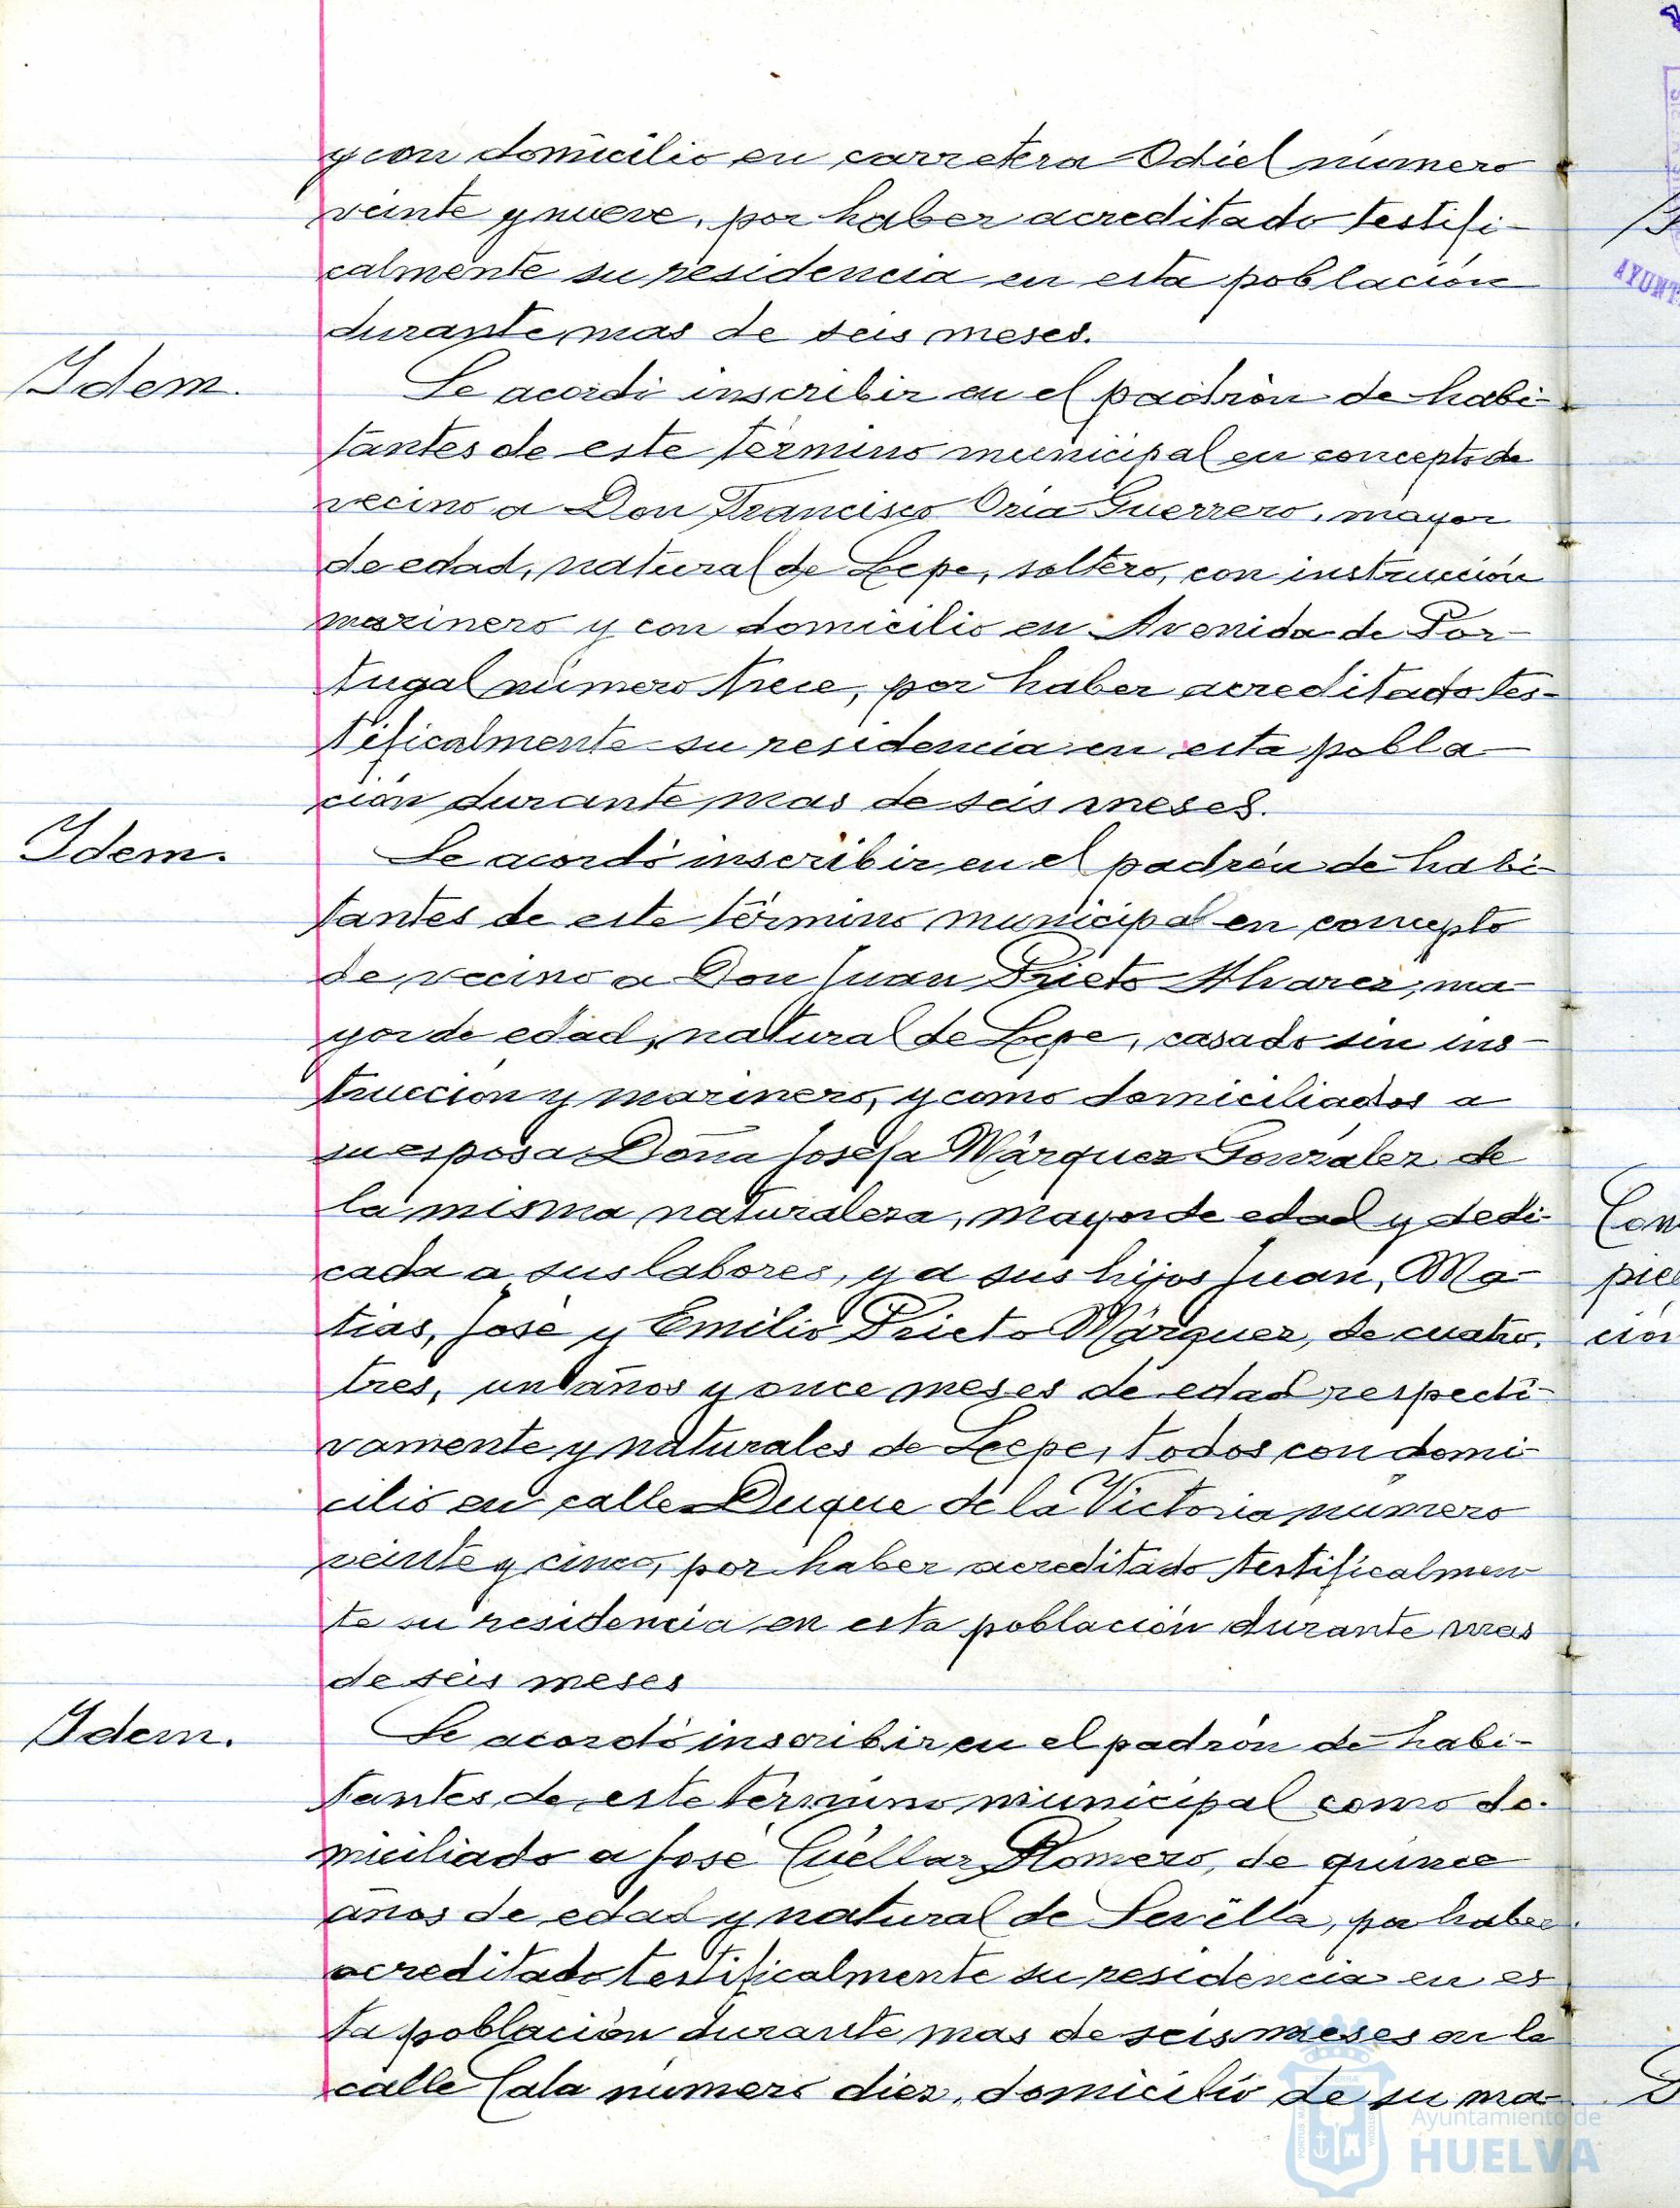 y con domicilio en carretera Odiel número
veinte y nueve, por haber acreditado testifi-
calmente su residencia en esta población
durante mas de seis meses.
Idem.
Se acordó inscribir en el padrón de habi-
tantes de este término municipal en concepto de
vecino a Don Francisco Oria Guerrero, mayor
de edad, natural de Lepe, soltero, con instrucción
marinero y con domicilio en Avenida de Por-
tugal número trece, por haber acreditado tes-
tificalmente su residencia en esta pobla-
ción durante mas de seis meses.
Idem.
Se acordó inscribir en el padrón de habi-
tantes de este término municipal en concepto
de vecino a Don Juan Prieto Alvarez, ma-
yor de edad, natural de Lepe, casado sin ins-
trucción y marinero, y como domiciliados a
su esposa Doña Josefa Márquez González de
la misma naturaleza, mayor de edad y dedi-
cada a sus labores, y a sus hijos Juan, Ma-
tias, José y Emilio Prieto Márquez, de cuatro,
tres, un años y once meses de edad respecti-
vamente y naturales de Lepe, todos con domi-
cilio en calle Duque de la Victoria número
veinte y cinco, por haber acreditado testificalmen-
te su residencia en esta población durante mas
de seis meses
Idem.
Se acordó inscribir en el padrón de habi-
tantes de este término municipal como do-
miciliado a José Cuéllar Romero, de quince
años de edad y natural de Sevilla, por haber
acreditado testificalmente su residencia en es
ta población durante mas de seis meses en la
calle Cala número diez, domicilio de su ma-
Ayuntamiento de
HUELVA
Con
pie
ción
AYUNT